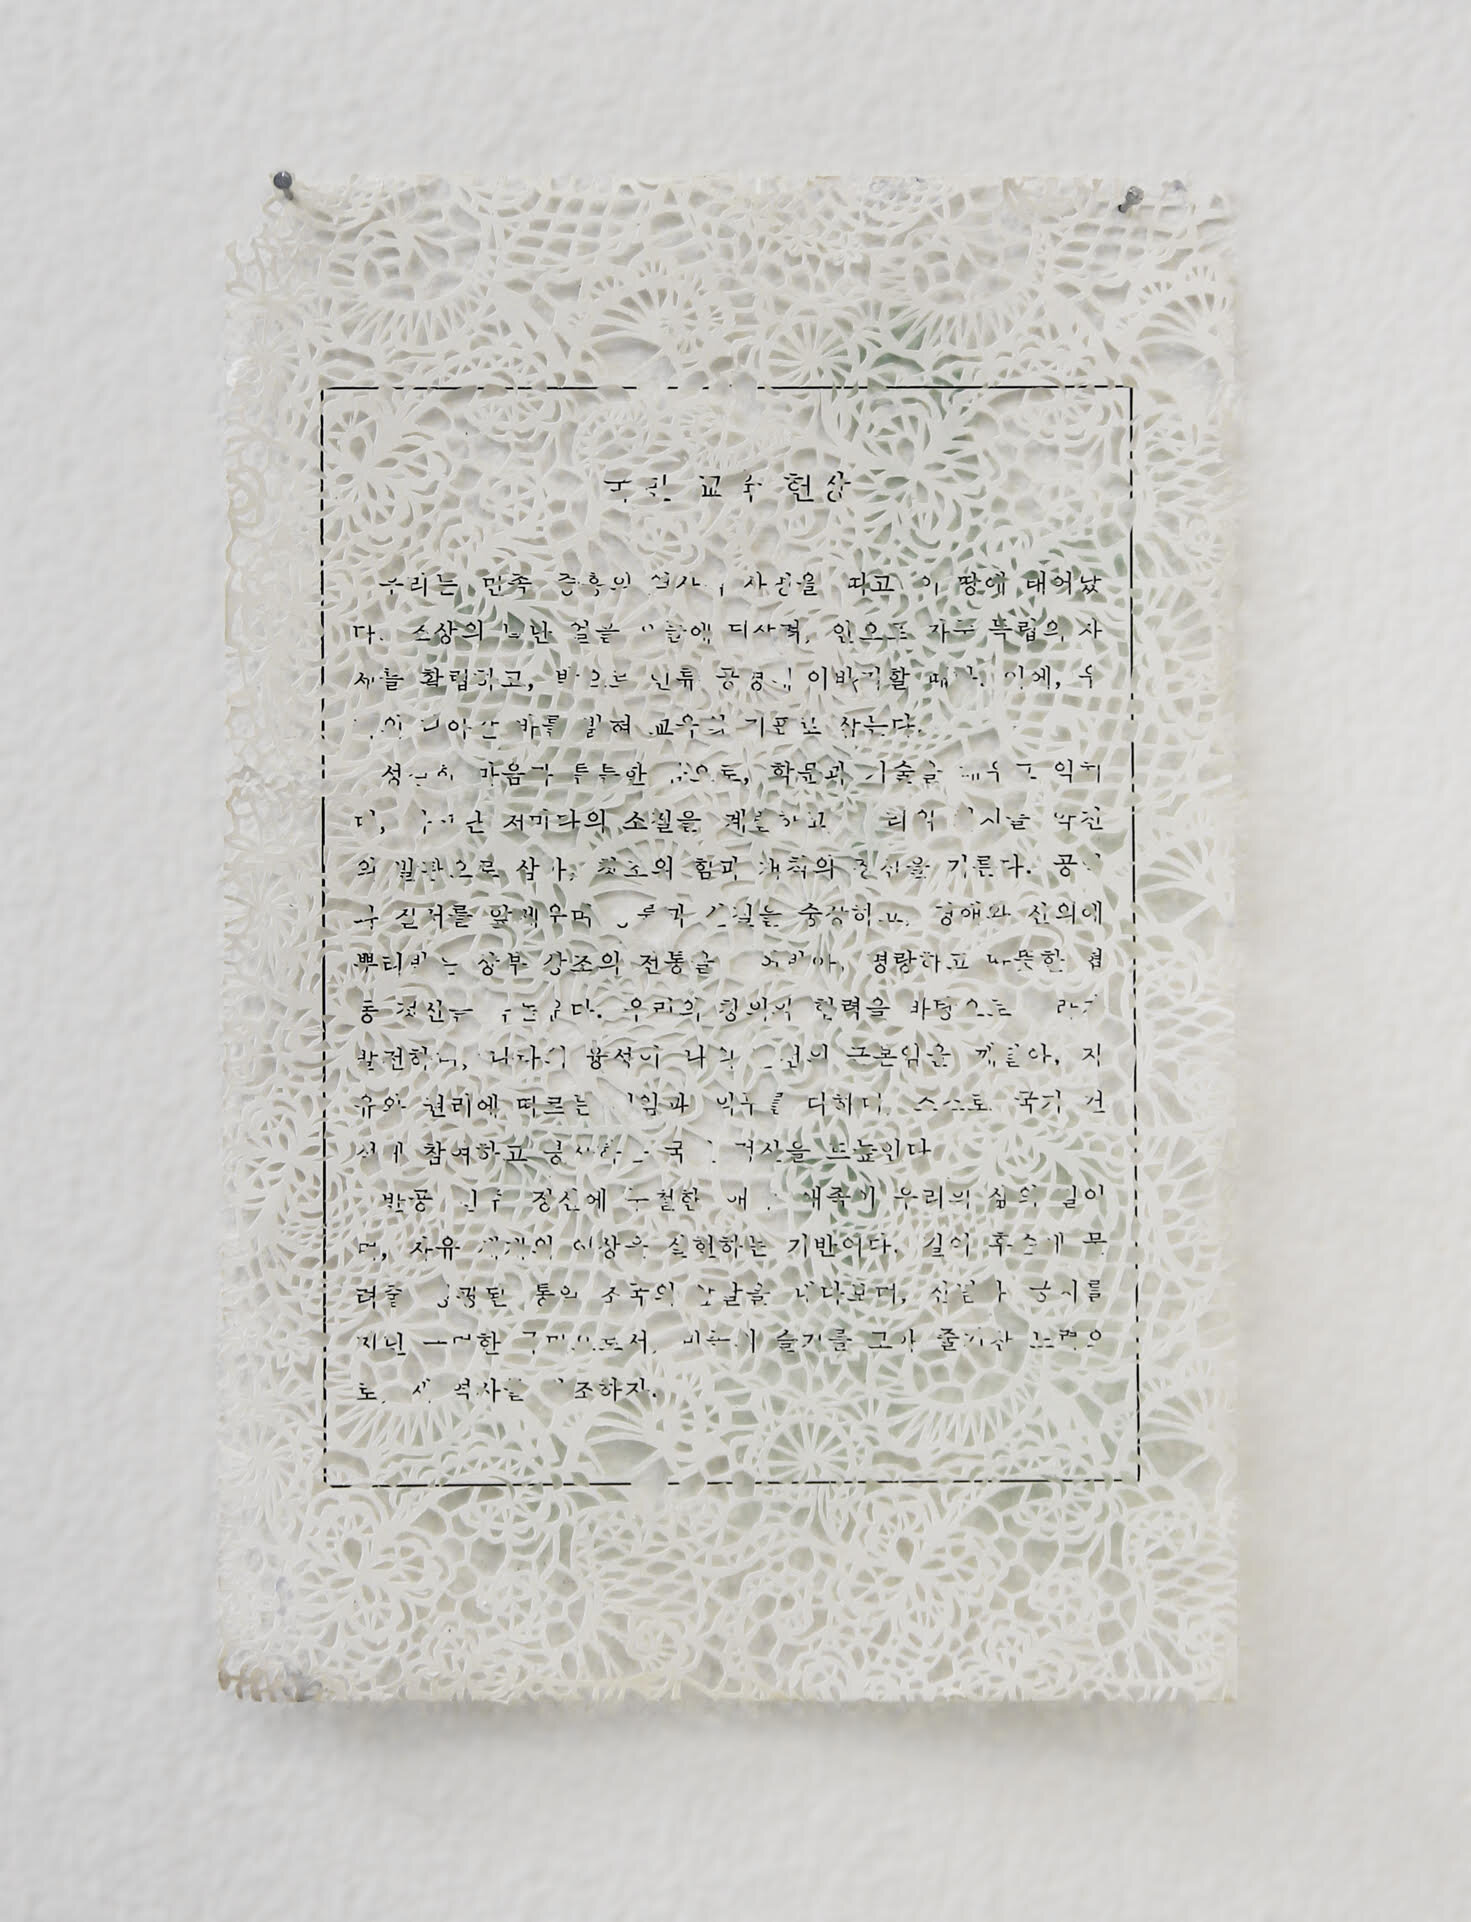 국민 교육 헌장
우리는 민족 중흥의 역사적 사명을 띠고 이 땅에 태어났
다. 조상의 빛난 얼을 오늘에 되살려, 안으로 자주 독립의 자
세를 확립하고, 밖으로 인류 공영에 이바지할 때다. 이에, 우
리의 나아갈 바를 밝혀 교육의 지표로 삼는다.
성실한 마음과 튼튼한 몸으로, 학문과 기술을 배우고 익히
며, 타고난 저마다의 소질을 계발하고, 우리의 처지를 약진
의 발판으로 삼아, 창조의 힘과 개척의 정신을 기른다. 공익
과 질서를 앞세우며 능률과 실질을 숭상하고, 경애와 신의에
뿌리박은 상부 상조의 전통을 이어받아, 명랑하고 따뜻한 협
동 정신을 북돋운다. 우리의 창의와 협력을 바탕으로 나라가
발전하며, 나라의 융성이 나의 발전의 근본임을 깨달아, 자
유와 권리에 따르는 책임과 의무를 다하며, 스스로 국가 건
설에 참여하고 봉사하는 국민 정신을 드높인다.
반공 민주 정신에 투철한 애국 애족이 우리의 삶의 길이
며, 자유 세계의 이상을 실현하는 기반이다. 길이 후손에 물
려줄 영광된 통일 조국의 앞날을 내다보며, 신념과 긍지를
지닌 근면한 국민으로서, 민족의 슬기를 모아 줄기찬 노력으
로, 새 역사를 창조하자.